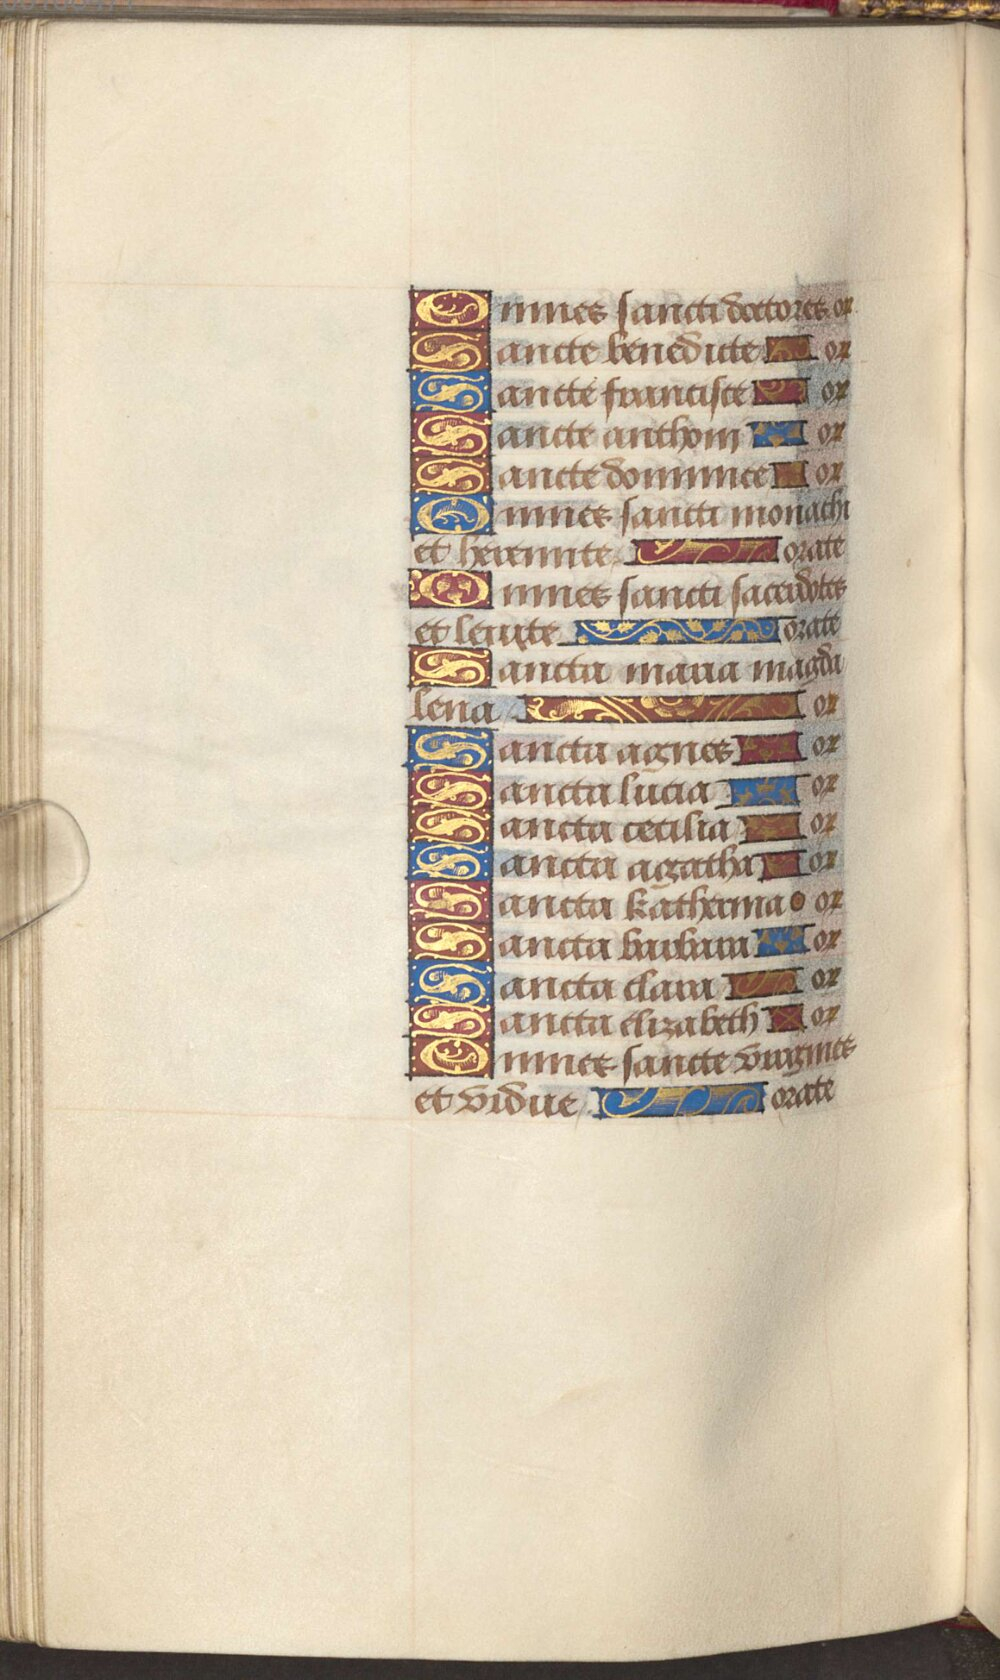 Omnes sancti doctores. or
Sancte benedicte or
Sancte francisce or
Sancte anthoni or
Sancte dominice or
Omnes sancti monachi
et heremite. orate
Omnes sancti sacerdotes
et leuite. orate
Sancta maria magda
lena or
Sancta agnes or
Sancta lucia or
Sancta cecilia or
Sancta agatha or
Sancta katherina or
Sancta barbara or
Sancta clara or
Sancta elizabeth or
Omnes sancte virgines
et vidue. orate